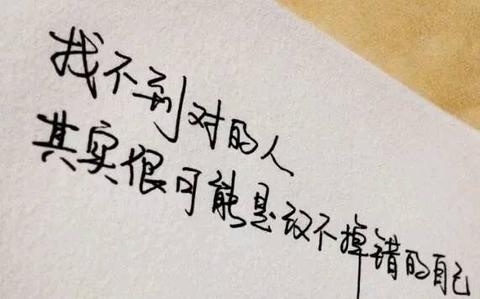 找不到对的人
其实很可能是改不掉错的自己